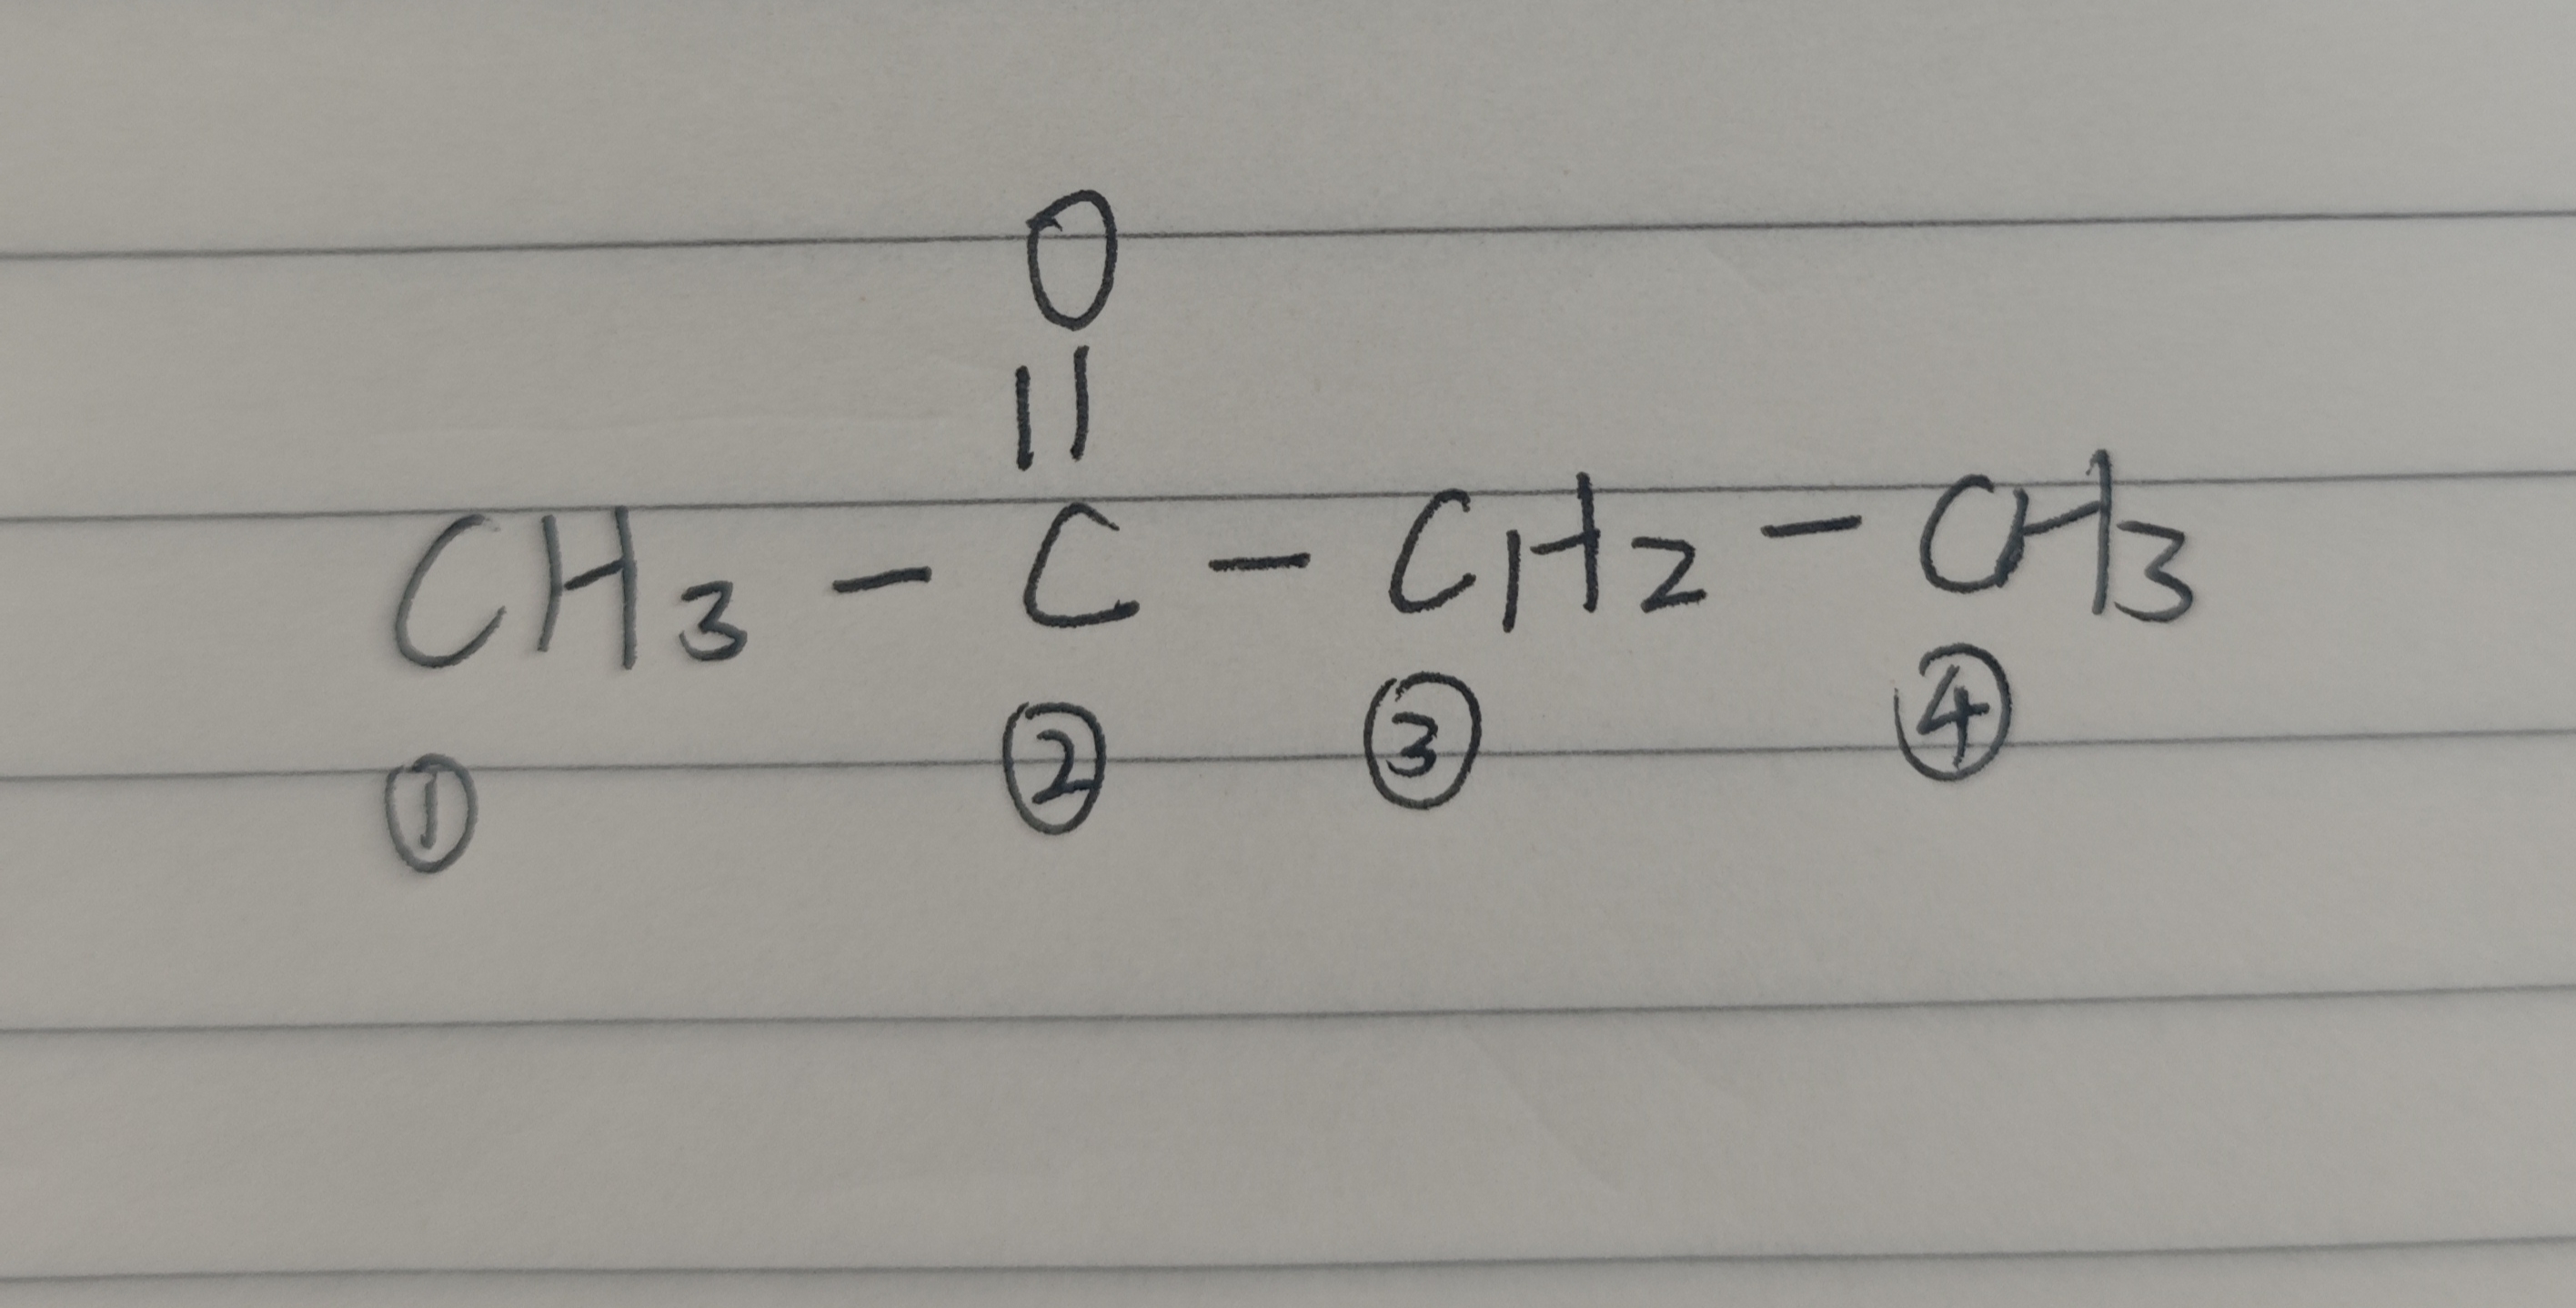 O
||
CH₃ - C - CH₂ - CH₃
① ② ③ ④